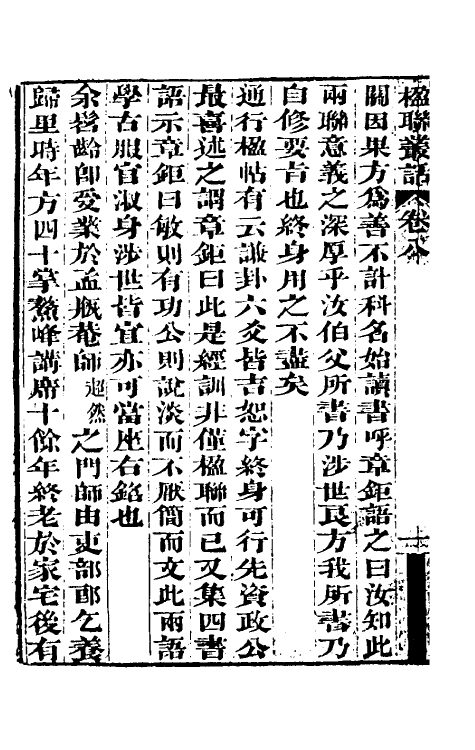 楹聯叢話 卷八 十一
關因果方爲善不計科名始讀書呼章鉅語之曰汝知此
兩聯意義之深厚乎汝伯父所書乃涉世良方我所書乃
自修要旨也終身用之不盡矣
通行楹帖有云謙卦六爻皆吉恕字終身可行先資政公
最喜述之謂章鉅曰此是經訓非僅楹聯而已又集四書
語示章鉅曰敏則有功公則說淡而不厭簡而文此兩語
學古服官淑身涉世皆宜亦可當座右銘也
余髫齡卽受業於孟瓶菴師超然之門師由吏部郎乞養
歸里時年方四十掌鰲峰講席十餘年終老於家宅後有